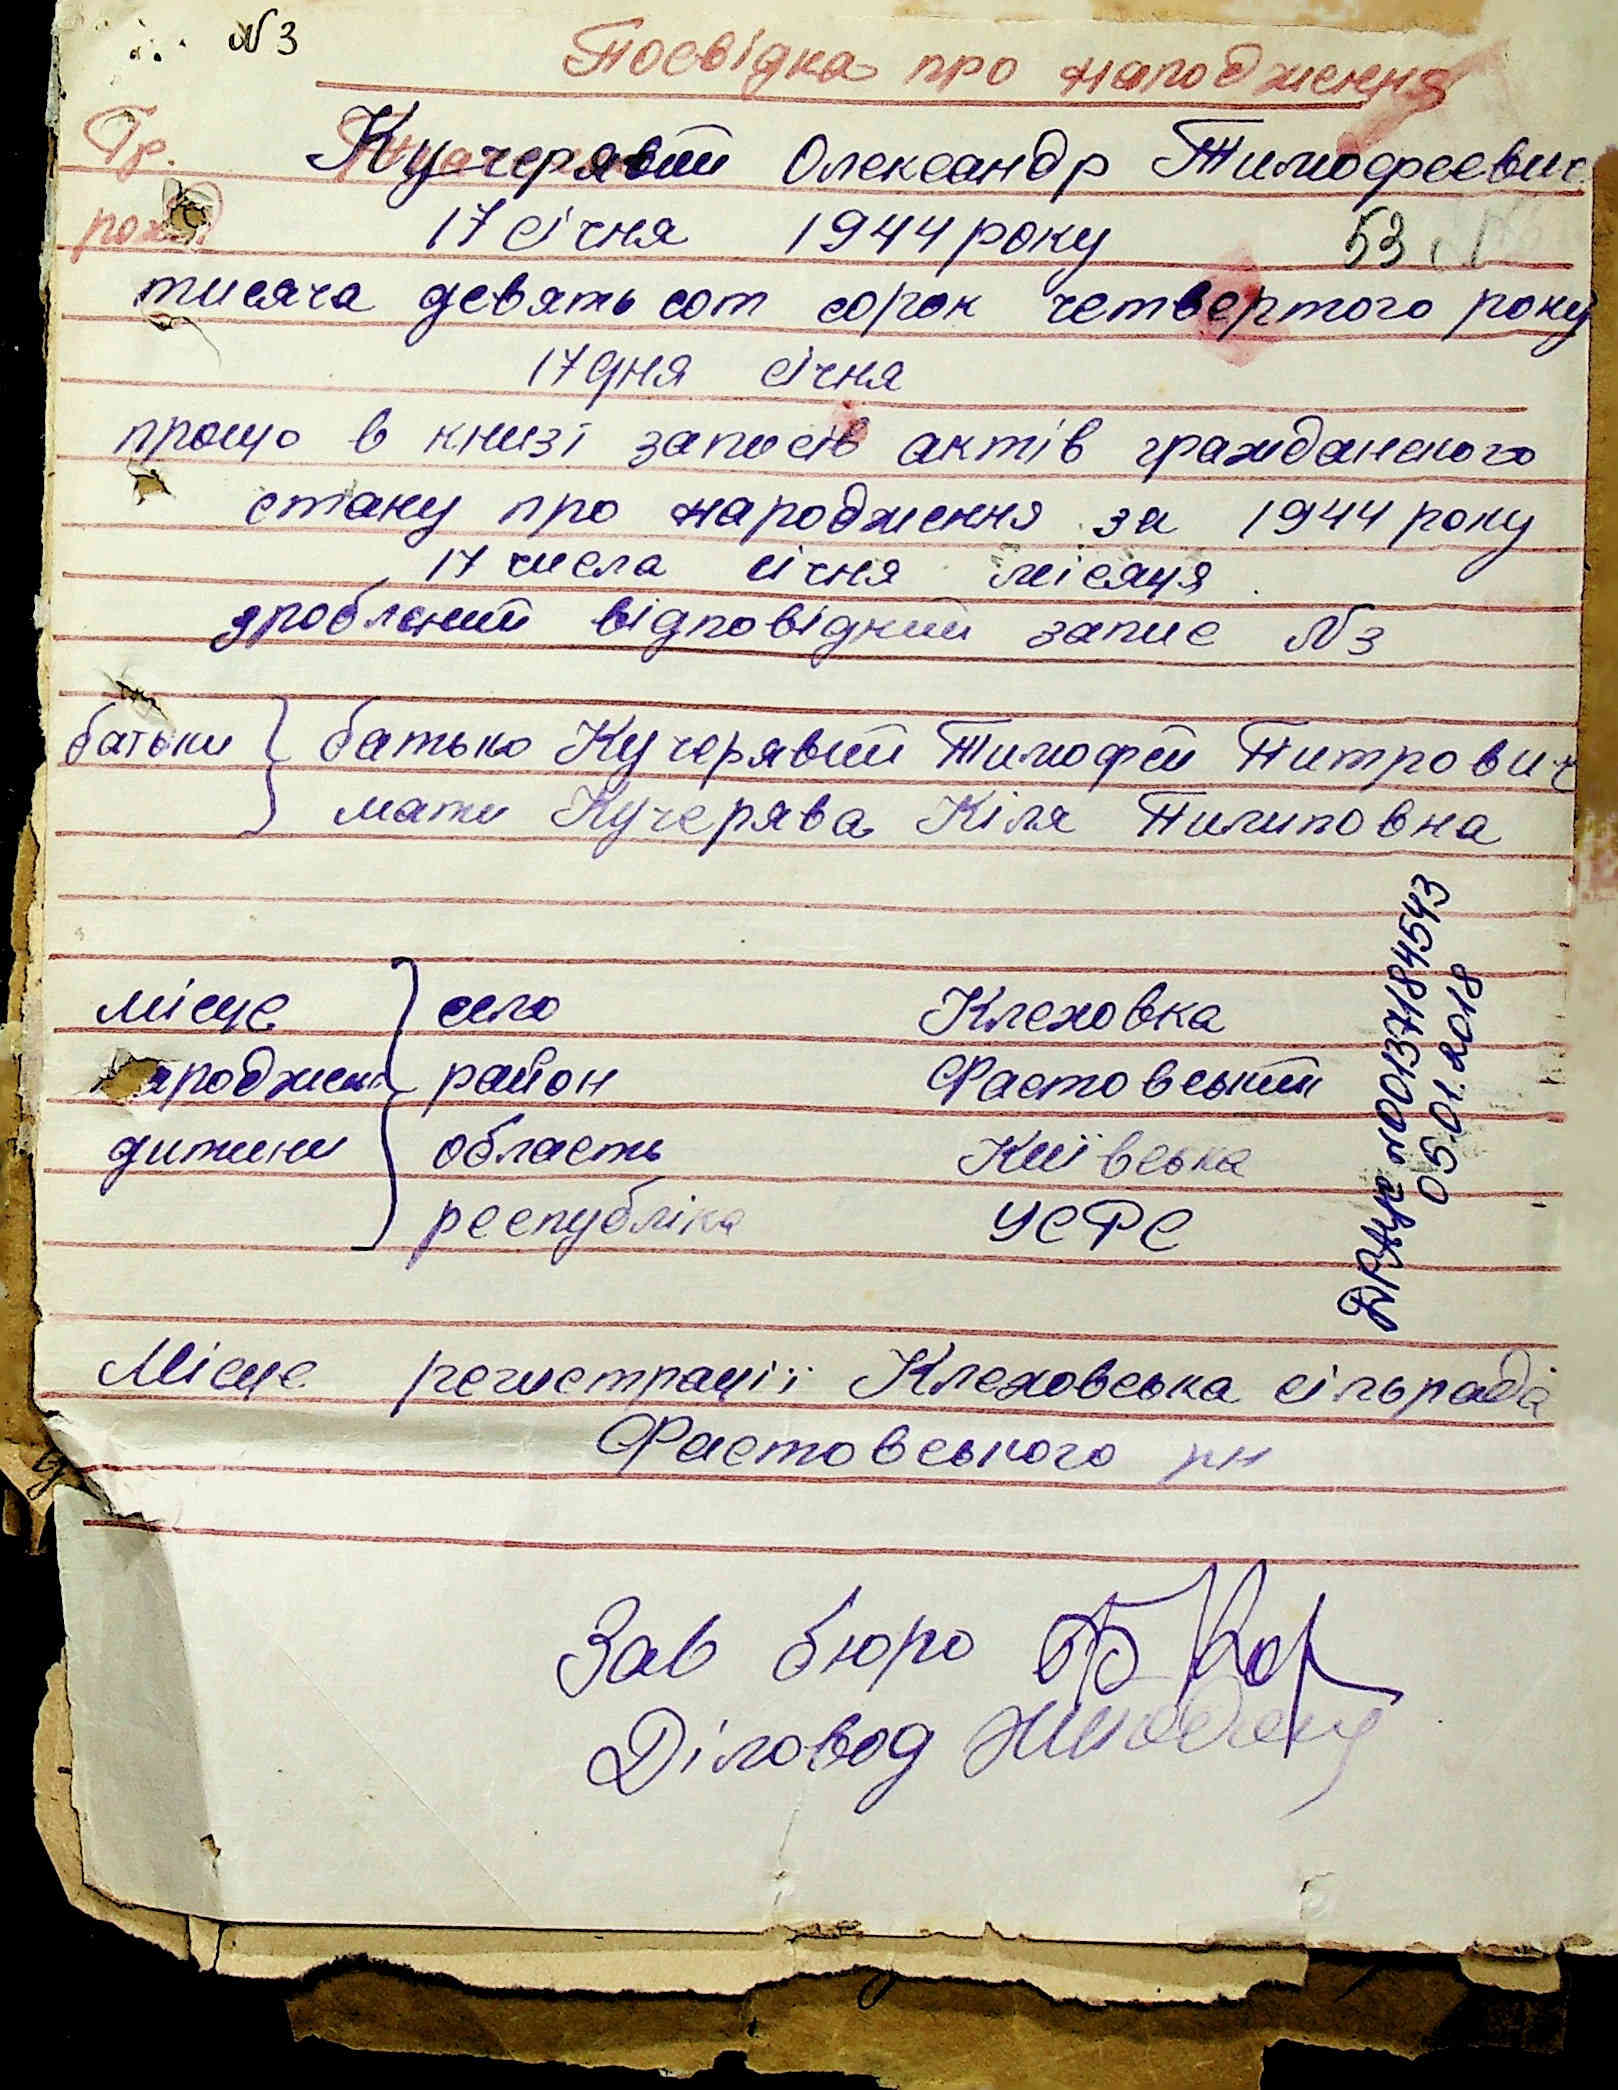 № 3
Посвідка про народження
Гр. Кучерявий Олександр Тимофеевич
17 січня 1944 року 53
тисяча девять сот сорок четвертого року
17 дня січня
прощо в книзі записів актів гражданского
стану про народження за 1944 року
17 числа січня місяця
зроблений відповідний запис № 3
батьки батько Кучерявий Тимофей Питрович
мати Кучерява Кіля Пилиповна
місце село Клеховка
народжен район Фастовський
дитини область Київська
республіка УСРС
ДРАЦС №00137184543
05.01.2018
Місце регистрації Клеховська сільрада
Фастовського рн
Зав бюро
Діловод